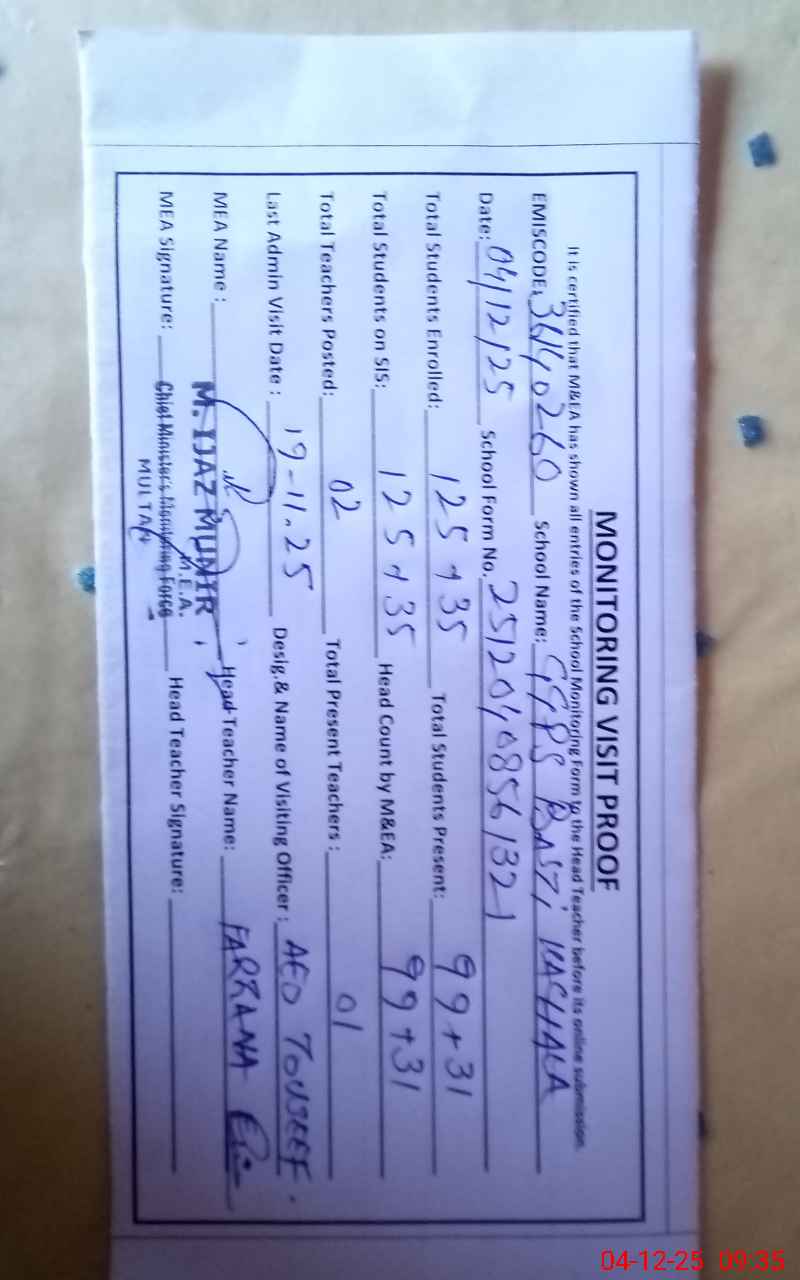 MONITORING VISIT PROOF
It is certified that M&EA has shown all entries of the School Monitoring Form to the Head Teacher before its online submission.
EMISCODE: 36140260 School Name: GGPS BASTI
Date: 04/12/25 School Form No. 25120408561321
Total Students Enrolled: 125+35 Total Students Present: 99+31
Total Students on SIS: 125+35 Head Count by M&EA: 99+31
Total Teachers Posted: 02 Total Present Teachers: 01
Last Admin Visit Date: 19-11.25 Desig.& Name of Visiting Officer: AEO TOUSEEF.
MEA Name: M. IJAZ MUNIR Head Teacher Name: FARZANA
M.E.A.
MEA Signature: Chief Minister's Monitoring Force Head Teacher Signature:
MULTAN
04-12-25 09:35